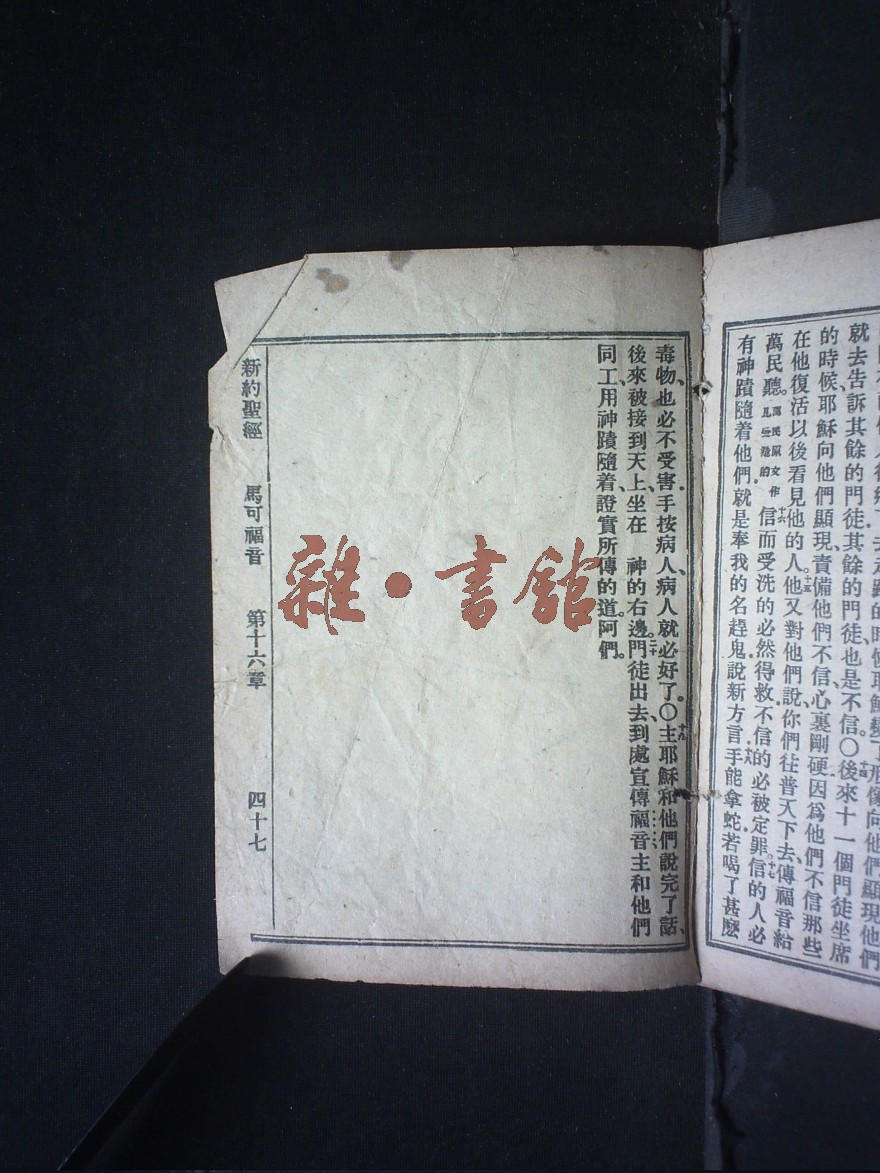 就去告訴其餘的門徒、其餘的門徒也是不信。〇十四後來十一個門徒坐席
的時候、耶穌向他們顯現、責備他們不信、心裏剛硬、因爲他們不信那些
在他復活以後看見他的人。十五他又對他們說、你們往普天下去、傳福音給
萬民聽。萬民原文作凡受造的十六信而受洗的必然得救、不信的必被定罪。十七信的人必
有神蹟隨着他們、就是奉我的名趕鬼、說新方言、十八手能拿蛇、若喝了甚麽
毒物、也必不受害、手按病人、病人就必好了。〇十九主耶穌和他們說完了話、
後來被接到天上、坐在 神的右邊。二十門徒出去、到處宣傳福音、主和他們
同工、用神蹟隨着、證實所傳的道。阿們。
新約聖經 馬可福音 第十六章 四十七
雜·書館